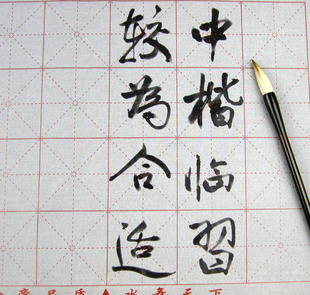 中楷临習
较為合适